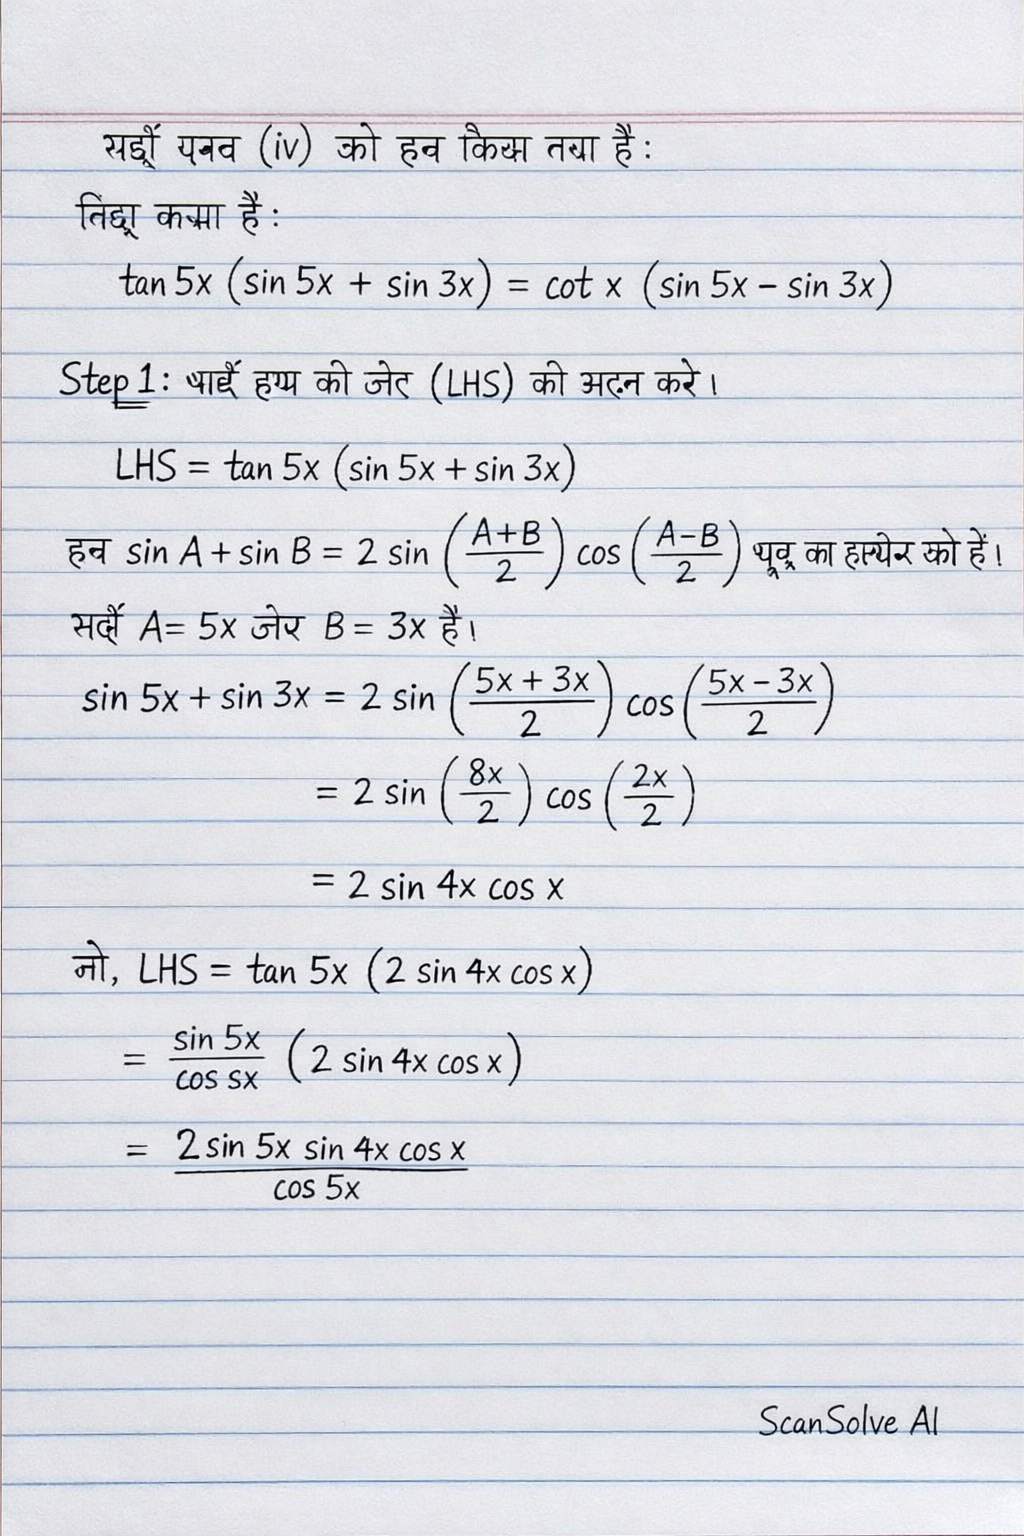 (iv) को किया है:
है:
tan 5x (sin 5x + sin 3x) = cot x (sin 5x − sin 3x)
Step 1: की (LHS) को करे।
LHS = tan 5x (sin 5x + sin 3x)
हन sin A + sin B = 2 sin ((A+B)/2) cos ((A−B)/2) का को हें।
A = 5x जेर B = 3x है।
sin 5x + sin 3x = 2 sin ((5x + 3x)/2) cos ((5x − 3x)/2)
= 2 sin (8x/2) cos (2x/2)
= 2 sin 4x cos x
नो, LHS = tan 5x (2 sin 4x cos x)
= sin 5x / cos sx (2 sin 4x cos x)
= 2 sin 5x sin 4x cos x / cos 5x
ScanSolve AI